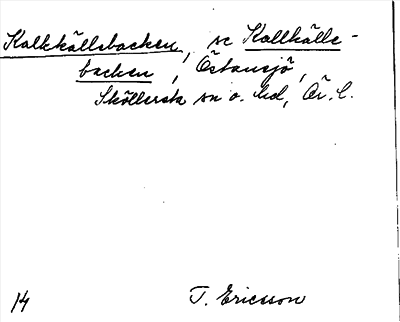 Kalkkällsbacken, se Kallkälls-
backen, Östansjö,
Sköllersta sn o. hd, Ör. l.
14 T. Ericsson